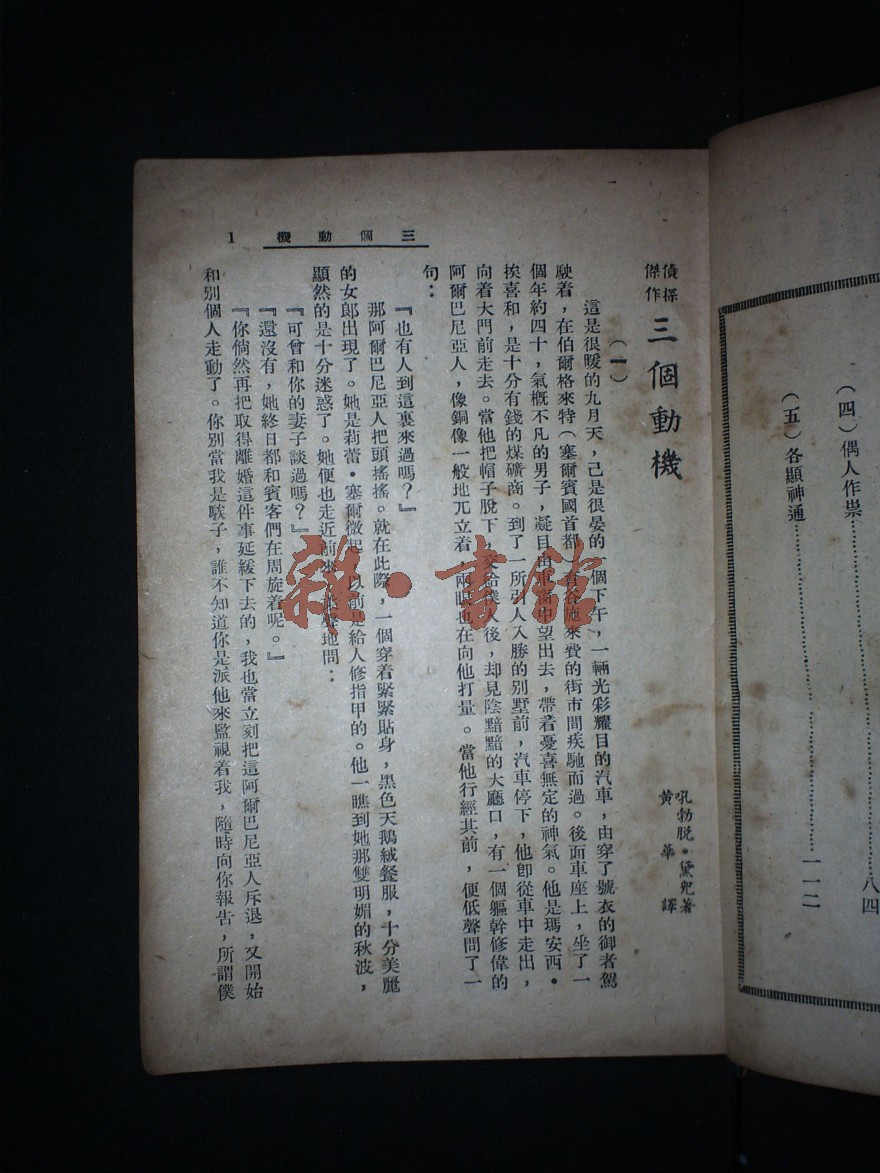 (四)偶人作祟……八四
(五)各顯神通……一一二
偵探
傑作
三個動機
吼勃脫·黛兜著
黃華譯
(一)
這是很暖的九月天,己是很晏的一個下午,一輛光彩耀目的汽車,由穿了號衣的御者駕
駛着,在伯爾格來特(塞爾賓國首都 費的街市間疾馳而過。後面車座上,坐了一
個年約四十,氣槪不凡的男子,凝目由車窗中望出去,帶着憂喜無定的神氣。他是瑪安西·
挨喜和,是十分有錢的煤礦商。到了一所引人入勝的別墅前,汽車停下,他卽從車中走出,
向着大門前走去。當他把帽子脫下,交給僕人後,却見陰黯黯的大廳口,有一個軀幹修偉的
阿爾巴尼亞人,像銅像一般地兀立着,兩眼也在向他打量。當他行經其前,便低聲問了一
句:
『也有人到這裏來過嗎?』
那阿爾巴尼亞人把頭搖搖。就在此際,一個穿着緊緊貼身,黑色天鵝絨餐服,十分美麗
的女郎出現了。她是莉蕾·塞爾微起 以前是給人修指甲的。他一瞧到她那雙明媚的秋波,
顯然的是十分迷惑了。她便也走近前來 聲地問:
『可曾和你的妻子談過嗎?』
『還沒有,她終日都和賓客們在周旋着呢。』
『你倘然再把取得離婚這件事延緩下去的,我也當立刻把這阿爾巴尼亞人斥退,又開始
和別個人走動了。你別當我是騃子,誰不知道你是派他來監視着我,隨時向你報告,所謂僕
三個動機 1
雜·書館